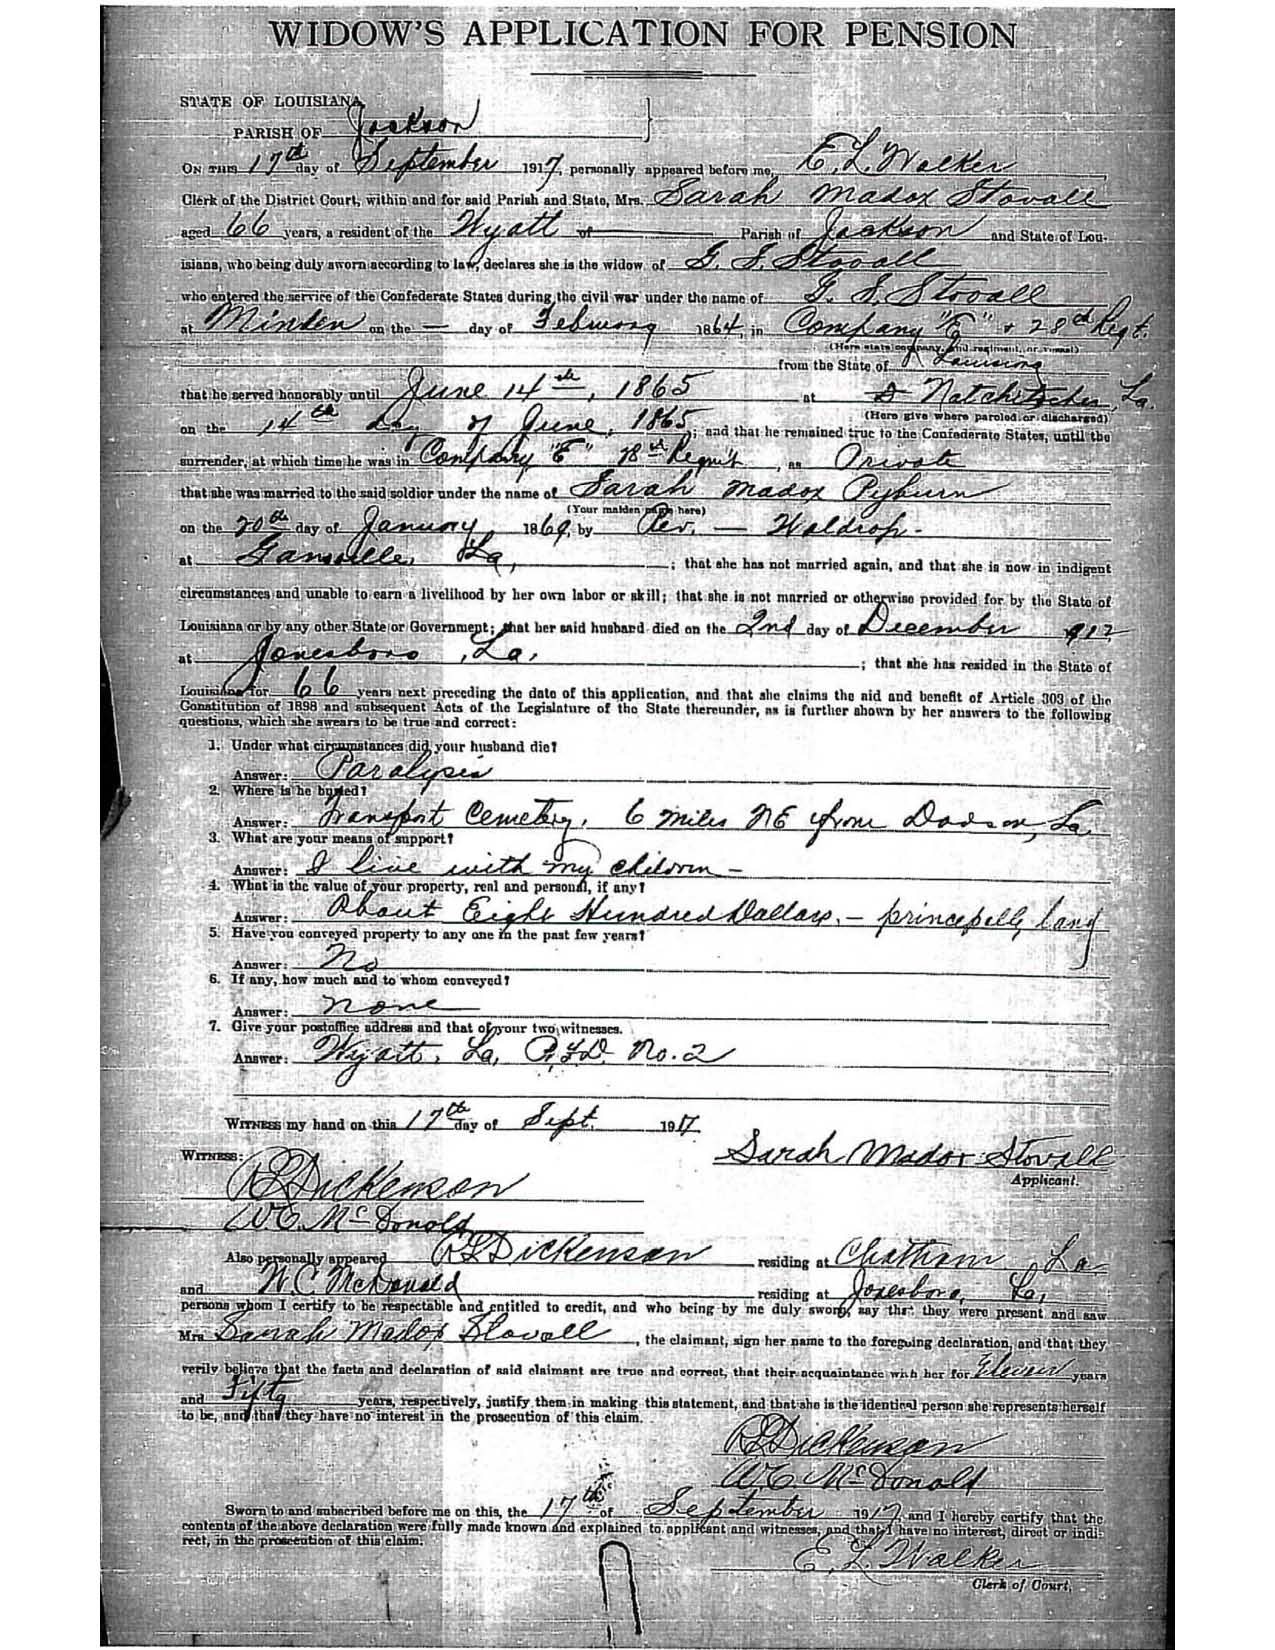 WIDOW'S APPLICATION FOR PENSION
STATE OF LOUISIANA,
PARISH OF Jackson
ON THIS 17th day of September 1917, personally appeared before me, E. L. Walker
Clerk of the District Court, within and for said Parish and State, Mrs. Sarah Madox Stovall
aged 66 years, a resident of the Wyatt of Parish of Jackson and State of Lou-
isiana, who being duly sworn according to law, declares she is the widow of G. S. Stovall
who entered the service of the Confederate States during the civil war under the name of G. S. Stovall
at Minden on the — day of February 1864, in Company "E" + 28th Regt.
(Here state company, and regiment, or vessel)
from the State of
that he served honorably until June 14th, 1865 at Natchitoches, La.
(Here give where paroled or discharged)
on the 14th day of June, 1865; and that he remained true to the Confederate States, until the
surrender, at which time he was in Company "E" 28th , as Private
that she was married to the said soldier under the name of Sarah Madox Pyburn
(Your maiden name here)
on the 20th day of January, 1869, by Rev. — Waldrop.
at La, ; that she has not married again, and that she is now in indigent
circumstances and unable to earn a livelihood by her own labor or skill; that she is not married or otherwise provided for by the State of
Louisiana or by any other State or Government; that her said husband died on the 2nd day of December 1912
at Jonesboro, La, ; that she has resided in the State of
Louisiana for 66 years next preceding the date of this application, and that she claims the aid and benefit of Article 303 of the
Constitution of 1898 and subsequent Acts of the Legislature of the State thereunder, as is further shown by her answers to the following
questions, which she swears to be true and correct:
1. Under what circumstances did your husband die?
Answer: Paralysis
2. Where is he buried?
Answer: Transport Cemetery, 6 miles NE from Dodson, La.
3. What are your means of support?
Answer: I live with my children —
4. What is the value of your property, real and personal, if any?
Answer: About Eight Hundred Dollars, — princepelly land
5. Have you conveyed property to any one in the past few years?
Answer: No
6. If any, how much and to whom conveyed?
Answer: None
7. Give your postoffice address and that of your two witnesses.
Answer: Wyatt, La, R.F.D. No. 2
WITNESS my hand on this 17th day of Sept. 1917
Sarah Madox Stovall
Applicant.
WITNESS:
R L Dickenson
W C McDonald
Also personally appeared R L Dickenson residing at Chatham, La
and W C McDonald residing at Jonesboro, La,
persons whom I certify to be respectable and entitled to credit, and who being by me duly sworn, say that they were present and saw
Mrs. Sarah Madox Stovall, the claimant, sign her name to the foregoing declaration, and that they
verily believe that the facts and declaration of said claimant are true and correct, that their acquaintance with her for Eleven years
and Fifty years, respectively, justify them in making this statement, and that she is the identical person she represents herself
to be, and that they have no interest in the prosecution of this claim.
R L Dickenson
W C McDonald
Sworn to and subscribed before me on this, the 17th of September 1917, and I hereby certify that the
contents of the above declaration were fully made known and explained to applicant and witnesses, and that I have no interest, direct or indi-
rect, in the prosecution of this claim.
E. L. Walker
Clerk of Court.